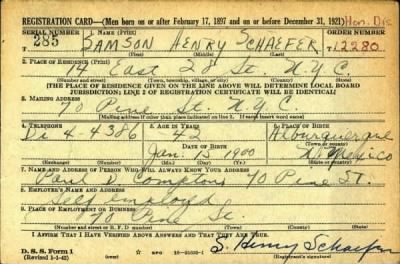 REGISTRATION CARD—(Men born on or after February 17, 1897 and on or before December 31, 1921) Hon. Dis
SERIAL NUMBER 1. NAME (Print) ORDER NUMBER
285 SAMSON HENRY SCHAEFER 12280
2. PLACE OF RESIDENCE (Print)
East 2nd St. N.Y.C.
(Number and street) (Town, township, village, or city) (County) (State)
[THE PLACE OF RESIDENCE GIVEN ON THE LINE ABOVE WILL DETERMINE LOCAL BOARD
JURISDICTION; LINE 2 OF REGISTRATION CERTIFICATE WILL BE IDENTICAL]
3. MAILING ADDRESS
70 Pine St. N.Y.C.
[Mailing address if other than place indicated on line 2. If same insert word same]
4. TELEPHONE 5. AGE IN YEARS 6. PLACE OF BIRTH
4-4386 42 Albuquerque
DATE OF BIRTH (Town or county)
Jan. 15 1900 N. Mexico
(Exchange) (Number) (Mo.) (Day) (Yr.) (State or country)
7. NAME AND ADDRESS OF PERSON WHO WILL ALWAYS KNOW YOUR ADDRESS
Paul D Compton 70 Pine St.
8. EMPLOYER'S NAME AND ADDRESS
Self employed
9. PLACE OF EMPLOYMENT OR BUSINESS
70 Pine St.
(Number and street or R. F. D. number) (Town) (County) (State)
I AFFIRM THAT I HAVE VERIFIED ABOVE ANSWERS AND THAT THEY ARE TRUE.
D. S. S. Form 1 S. Henry Schaefer
(Revised 1-1-42) (over) (Registrant's signature)